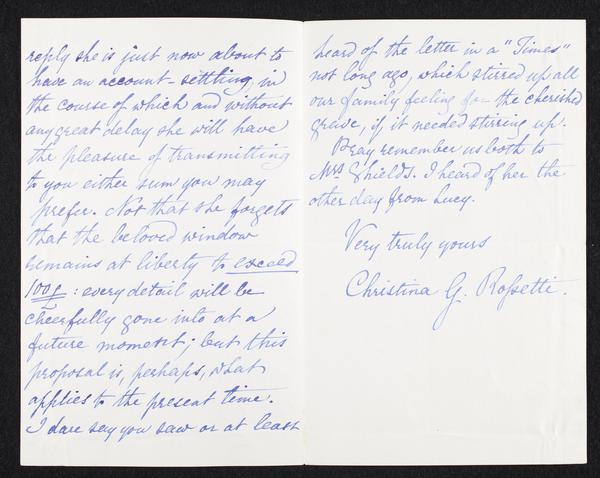 reply she is just now about to
have an account-settling, in
the course of which and without
any great delay she will have
the pleasure of transmitting
to you either sum you may
prefer. Not that she forgets
that the beloved window
remains at liberty to exceed
100£ : every detail will be
cheerfully gone into at a
future moment; but this
proposal is, perhaps, what
applies to the present time.
I dare say you saw or at least
heard of the letter in a "Times"
not long ago, which stirred up all
our family feeling for the cherished
grave, if it needed stirring up.
Pray remember us both to
Mrs Shields. I heard of her the
other day from Lucy.
Very truly yours
Christina G. Rossetti.